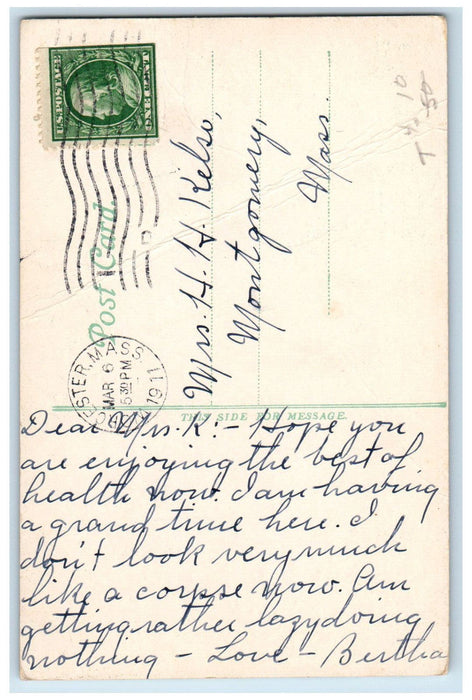 U.S. POSTAGE
ONE CENT
WORCESTER, MASS.
MAR 6
5 30 PM
1911
D
Post Card
T
50
10
Mrs. H. H. Kelso,
Montgomery,
Mass.
THIS SIDE FOR MESSAGE.
Dear Mrs. K:- Hope you
are enjoying the best of
health now. I am having
a grand time here. I
don't look very much
like a corpse now. Am
getting rather lazy doing
nothing - Love - Bertha